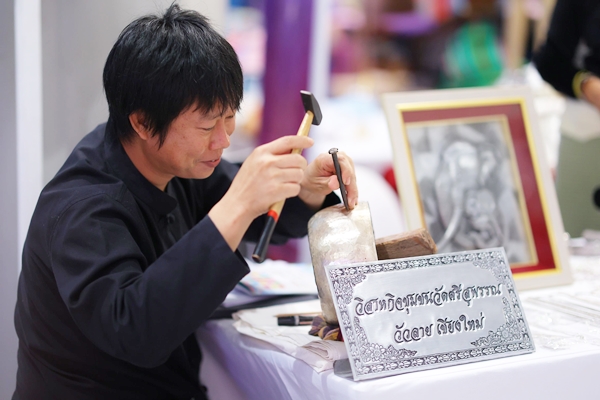 วิสาหกิจชุมชนวัดศรีสุพรรณ
วัวลาย เชียงใหม่